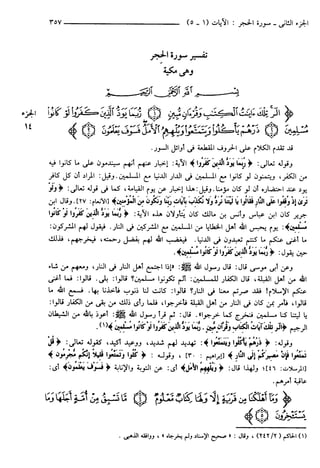 الجزء الثانى - سورة الحجر : الآيات (١ - ٥) ٣٥٧
تفسير سورة الحجر
وهى مكية
بسم الله الرحمن الرحيم
﴿ الٓر تِلْكَ ءَايَٰتُ ٱلْكِتَٰبِ وَقُرْءَانٍ مُّبِينٍ ۝ رُّبَمَا يَوَدُّ ٱلَّذِينَ كَفَرُوا۟ لَوْ كَانُوا۟
مُسْلِمِينَ ۝ ذَرْهُمْ يَأْكُلُوا۟ وَيَتَمَتَّعُوا۟ وَيُلْهِهِمُ ٱلْأَمَلُ فَسَوْفَ يَعْلَمُونَ ۝ ﴾
الجزء
١٤
قد تقدم الكلام على الحروف المقطعة فى أوائل السور.
وقوله تعالى: ﴿ رُبَمَا يَوَدُّ الَّذِينَ كَفَرُوا ﴾ الآية: إخبار عنهم أنهم سيندمون على ما كانوا فيه
من الكفر، ويتمنون لو كانوا مع المسلمين فى الدار الدنيا مع المسلمين. وقيل: المراد أن كل كافر
يود عند احتضاره أن لو كان مؤمنا. وقيل: هذا إخبار عن يوم القيامة، كما فى قوله تعالى: ﴿ وَلَوْ
تَرَىٰ إِذْ وُقِفُوا عَلَى النَّارِ فَقَالُوا يَا لَيْتَنَا نُرَدُّ وَلَا نُكَذِّبَ بِآيَاتِ رَبِّنَا وَنَكُونَ مِنَ الْمُؤْمِنِينَ ﴾ [الأنعام: ٢٧]. وقال ابن
جرير: كان ابن عباس وأنس بن مالك كان يتأولان هذه الآية: ﴿ رُبَمَا يَوَدُّ الَّذِينَ كَفَرُوا لَوْ كَانُوا
مُسْلِمِينَ ﴾: يوم يحبس الله أهل الخطايا من المسلمين مع المشركين فى النار. فيقول لهم المشركون:
ما أغنى عنكم ما كنتم تعبدون فى الدنيا. فيغضب الله لهم بفضل رحمته، فيخرجهم، فذلك
حين يقول: ﴿ رُبَمَا يَوَدُّ الَّذِينَ كَفَرُوا لَوْ كَانُوا مُسْلِمِينَ ﴾.
وعن أبى موسى قال: قال رسول الله ﷺ: «إذا اجتمع أهل النار فى النار، ومعهم من شاء
الله من أهل القبلة، قال الكفار للمسلمين: ألم تكونوا مسلمين؟ قالوا: بلى. قالوا: فما أغنى
عنكم الإسلام؟ فقد صرتم معنا فى النار؟ قالوا: كانت لنا ذنوب فأخذنا بها. فسمع الله ما
قالوا، فأمر بمن كان فى النار من أهل القبلة فأخرجوا، فلما رأى ذلك من بقى من الكفار قالوا:
يا ليتنا كنا مسلمين فنخرج كما خرجوا». قال: ثم قرأ رسول الله ﷺ: أعوذ بالله من الشيطان
الرجيم ﴿ الٓر تِلْكَ آيَاتُ الْكِتَابِ وَقُرْآنٍ مُّبِينٍ . رُبَمَا يَوَدُّ الَّذِينَ كَفَرُوا لَوْ كَانُوا مُسْلِمِينَ ﴾(١).
وقوله: ﴿ ذَرْهُمْ يَأْكُلُوا وَيَتَمَتَّعُوا ﴾: تهديد لهم شديد، ووعيد أكيد، كقوله تعالى: ﴿ قُلْ
تَمَتَّعُوا فَإِنَّ مَصِيرَكُمْ إِلَى النَّارِ ﴾ [إبراهيم : ٣٠] ، وقوله : ﴿ كُلُوا وَتَمَتَّعُوا قَلِيلًا إِنَّكُم مُّجْرِمُونَ ﴾
[المرسلات: ٤٦]؛ ولهذا قال: ﴿ وَيُلْهِهِمُ الْأَمَلُ ﴾ أى: عن التوبة والإنابة ﴿ فَسَوْفَ يَعْلَمُونَ ﴾ أى:
عاقبة أمرهم.
﴿ وَمَآ أَهْلَكْنَا مِن قَرْيَةٍ إِلَّا وَلَهَا كِتَابٌ مَّعْلُومٌ ۝ مَّا تَسْبِقُ مِنْ أُمَّةٍ أَجَلَهَا وَمَا
يَسْتَـْٔخِرُونَ ۝ ﴾
(١) الحاكم (٢٤٢/٢) ، وقال : « صحيح الإسناد ولم يخرجاه » ، ووافقه الذهبى .